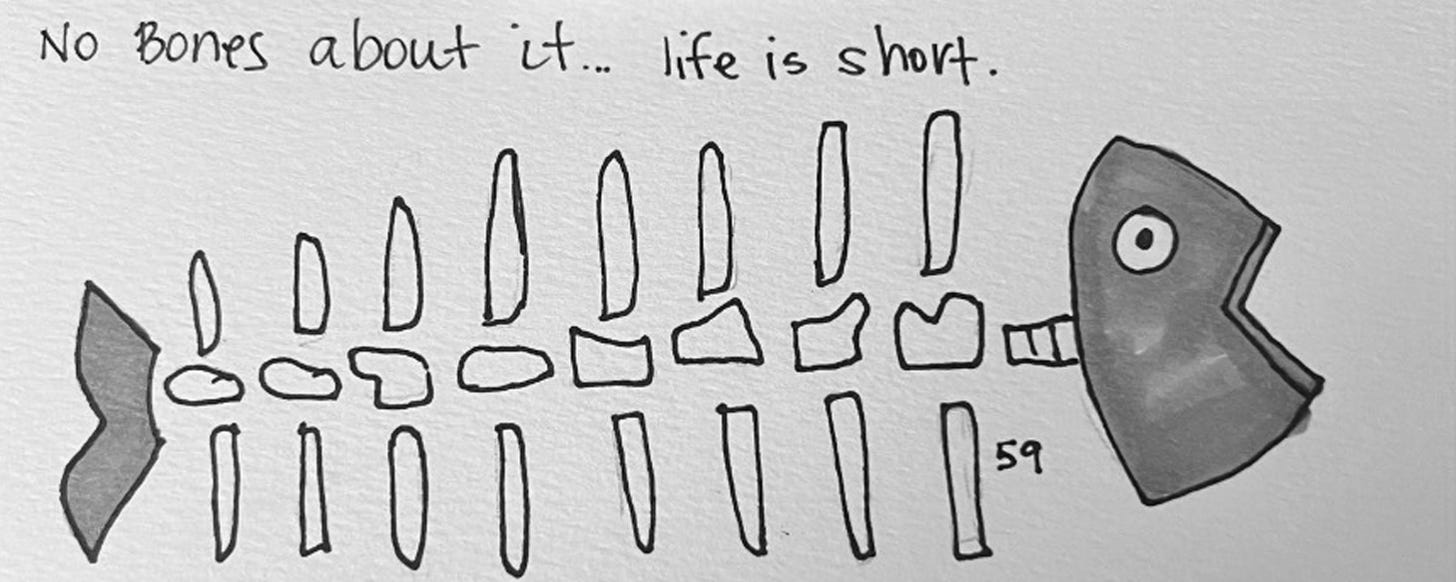 No Bones about it... life is short.
59